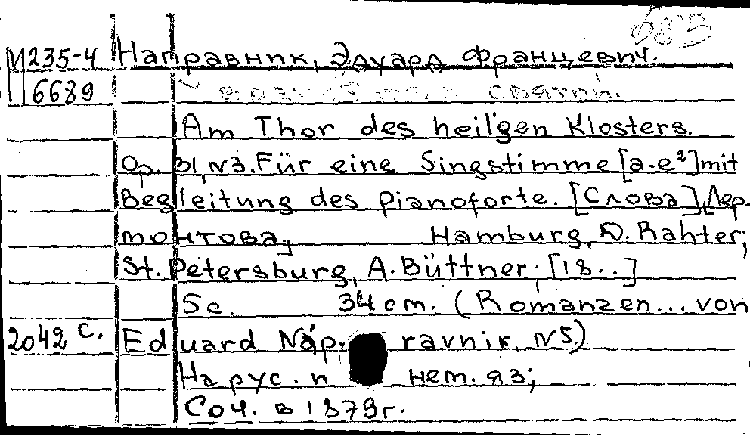 683
М235-4 Направник, Эдуард Францевич.
6689 святой.
Am Thor des heil'gen Klosters.
Op. 31, N3. Für eine Singstimme [a-e²] mit
Begleitung des Pianoforte. [Слова] Лер-
монтова, Hamburg, D. Rahter;
St. Petersburg, A. Büttner; [18..]
5c. 34 cm. (Romanzen... von
2042 с. Eduard Náp. ravnik, N5)
На рус. и нем. яз;
Соч. в 1879г.